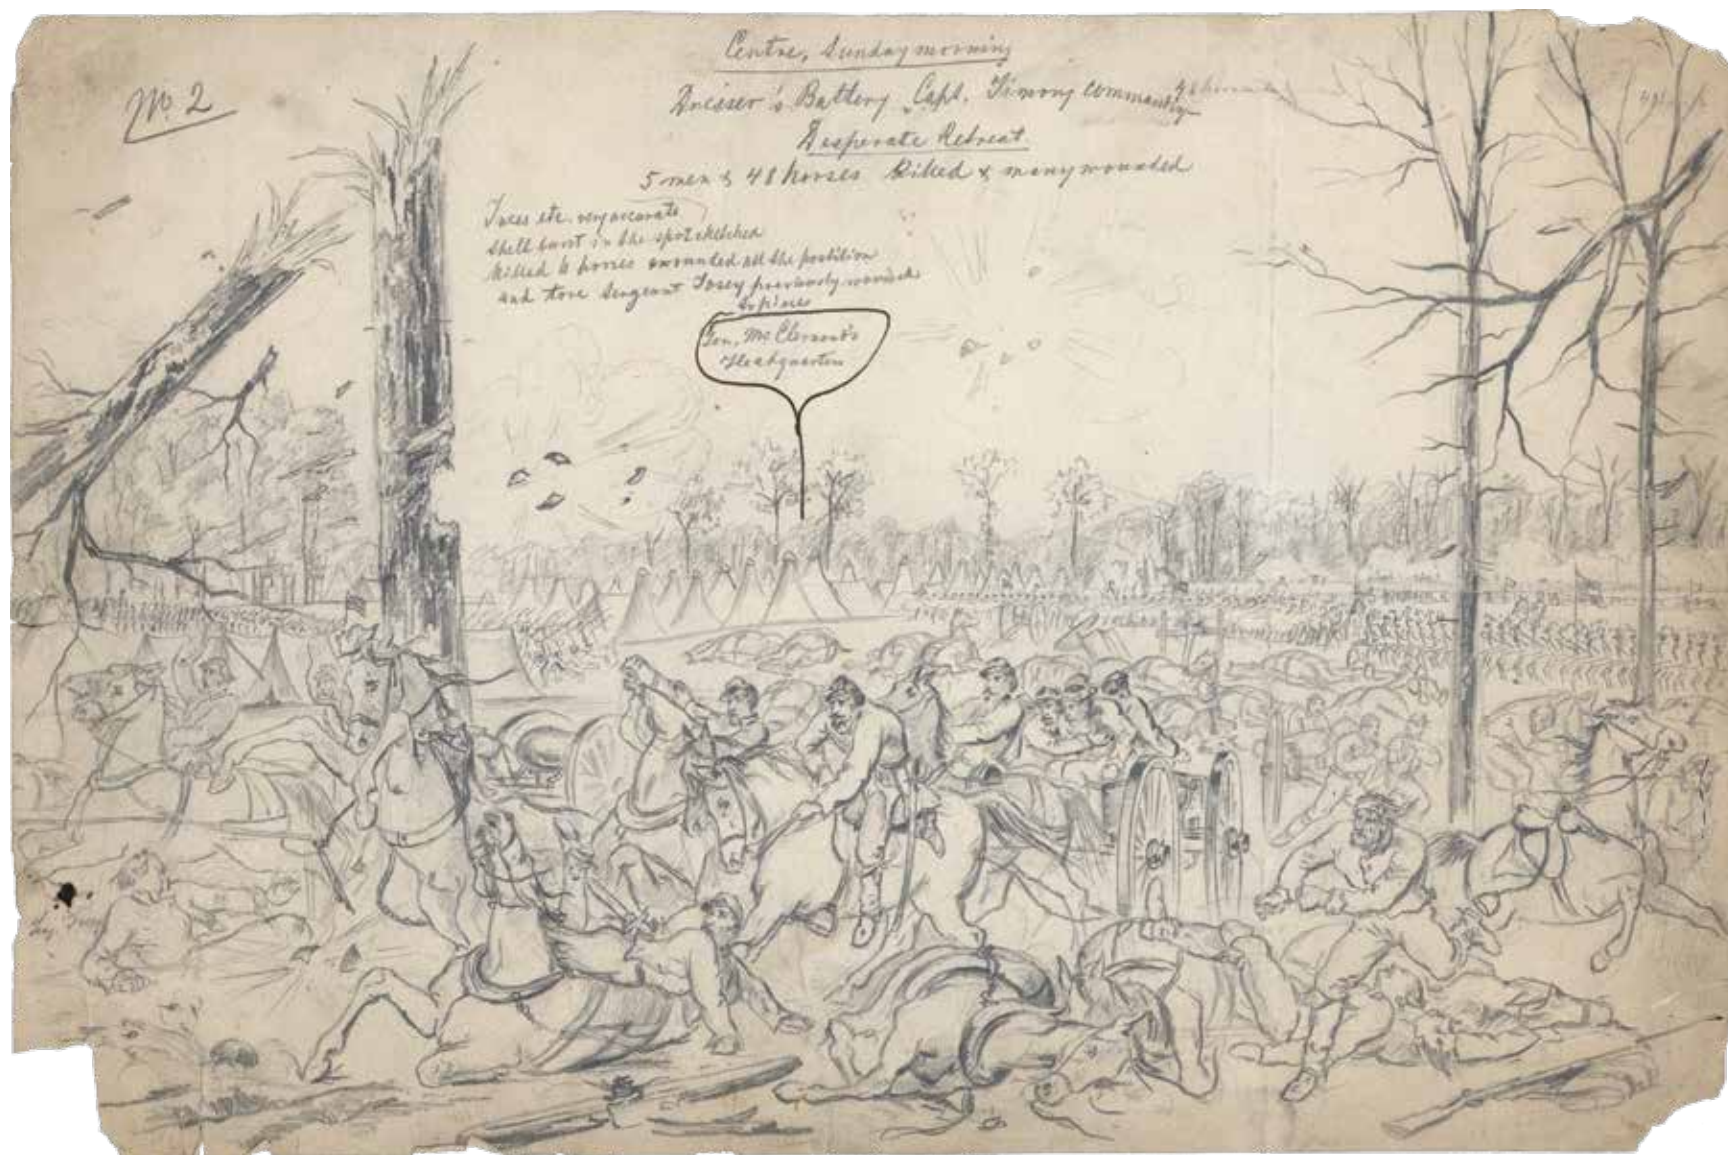 No. 2
Centre, Sunday morning
Dresser's Battery Capt. Timony commanding
Desperate Retreat.
5 men & 48 horses Killed & many wounded
Trees etc. very accurate
shell burst in the spot sketched
killed 6 horses wounded all the postilion
and tore Sergeant Tosey previously wounded
to pieces
Gen. McClernand's
Headquarters